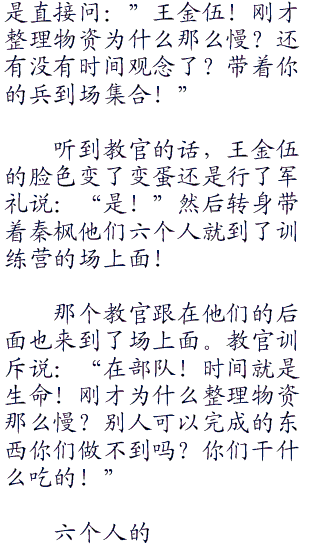 是直接问：”王金伍！刚才
整理物资为什么那么慢？还
有没有时间观念了？带着你
的兵到场集合！”
听到教官的话，王金伍
的脸色变了变蛋还是行了军
礼说：“是！”然后转身带
着秦枫他们六个人就到了训
练营的场上面！
那个教官跟在他们的后
面也来到了场上面。教官训
斥说：“在部队！时间就是
生命！刚才为什么整理物资
那么慢？别人可以完成的东
西你们做不到吗？你们干什
么吃的！”
六个人的